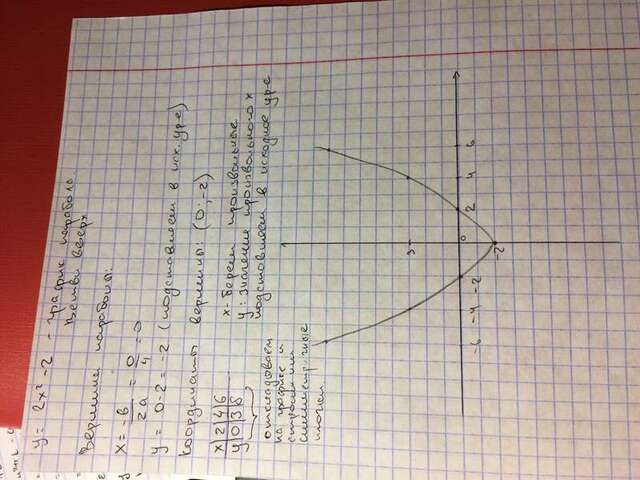 y = 2x² - 2 - график парабола
ветви вверх
Вершина параболы:
x = -b/2a = 0/4 = 0
y = 0 - 2 = -2 (подставляем в исх. ур-е)
Координаты вершины: (0; -2)
x|2|4|6
y|0|3|8
x - берем произвольные
y: значение произвольного x
подставляем в исходное ур-е
откладываем
на графике и
строим им
симметричные
точки
3
-6 -4 -2 0 2 4 6
-2